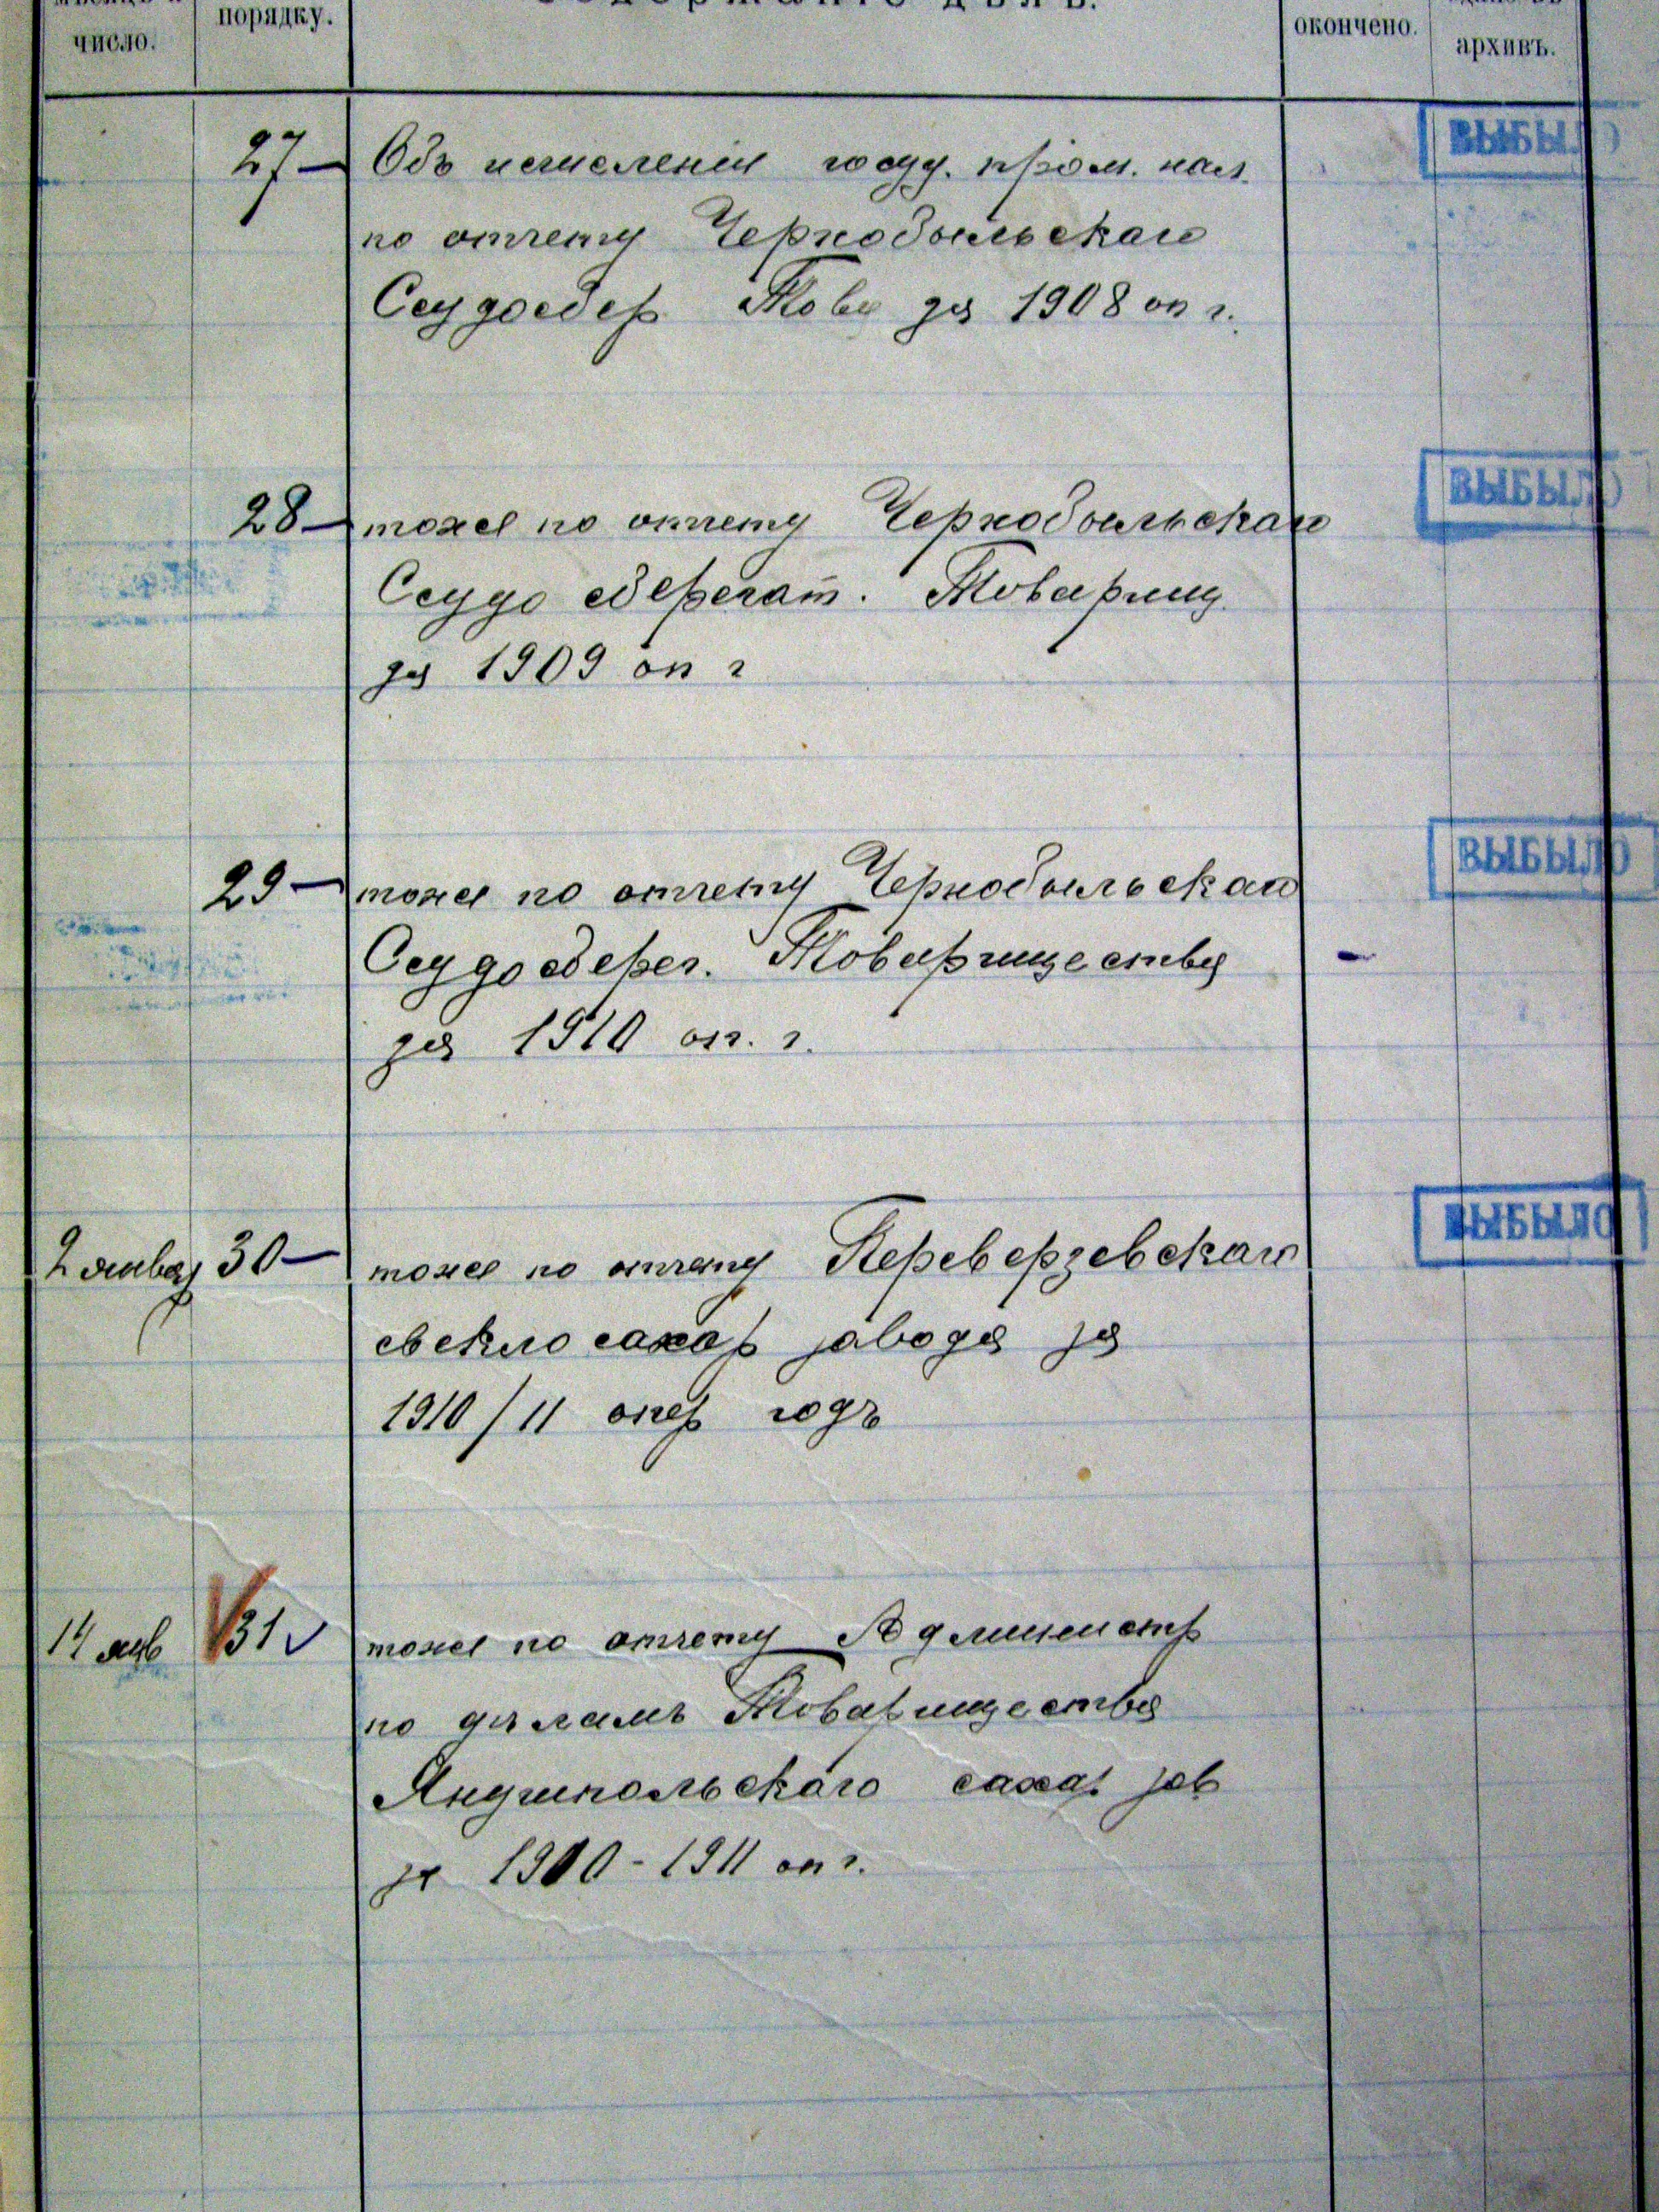 число.
порядку.
окончено.
архивъ.
27 – Объ исчисленіи госуд. пром. нал.
ВЫБЫЛО
по отчету Чернобыльскаго
Ссудосбер Това за 1908 оп г.
28 – тоже по отчету Чернобыльскаго
ВЫБЫЛО
Ссудо сберегат. Товарищ.
за 1909 оп г
29 – тоже по отчету Чернобыльскаго
ВЫБЫЛО
Ссудосберег. Товарищества
за 1910 оп. г.
2 января 30 – тоже по отчету Переверзевскаго
ВЫБЫЛО
свеклосахар завода за
1910/11 опер годъ
14 янв 31 тоже по отчету Администр
по дѣламъ Товарищества
Янушпольскаго сахар зав
за 1910-1911 оп г.